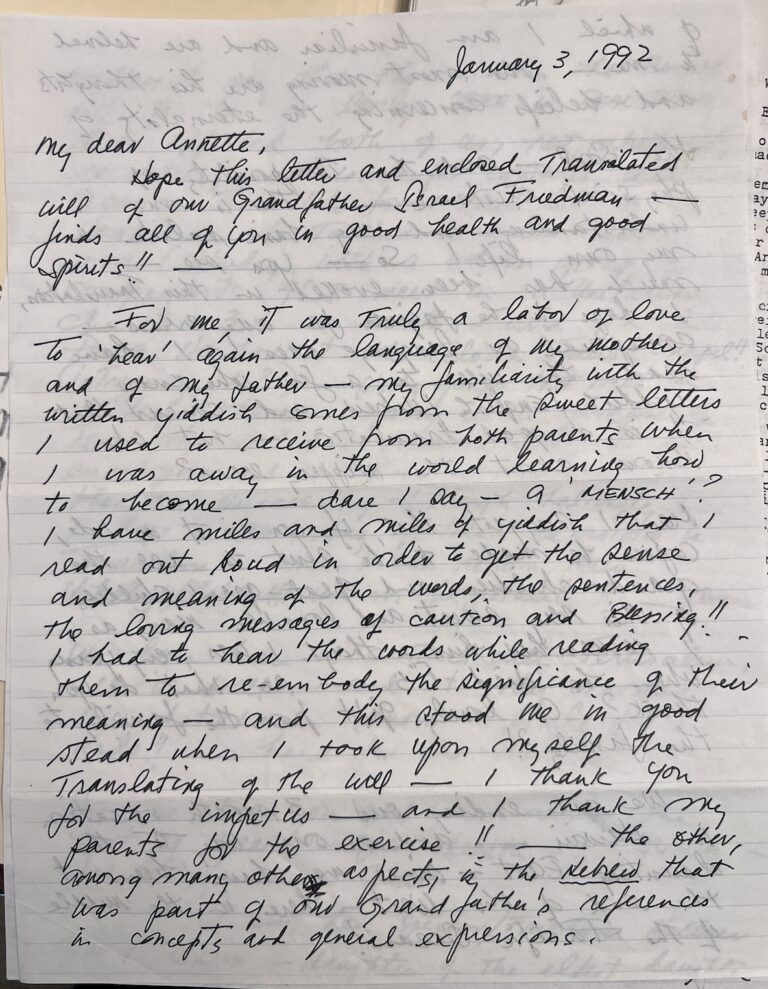 January 3, 1992
My dear Annette,
Hope this letter and enclosed Translated
will of our Grandfather Israel Friedman —
finds all of you in good health and good
spirits!! —
For me, it was Truly a labor of love
To 'hear' again the language of my mother
and of my father — my familiarity with the
written yiddish comes from the sweet letters
I used to receive from both parents when
I was away in the world learning how
to become — dare I say — a 'MENSCH'?
I have miles and miles of yiddish that I
read out loud in order to get the sense
and meaning of the words, the sentences,
the loving messages of caution and Blessing!!
I had to hear the words while reading
them to re-embody the significance of their
meaning — and this stood me in good
stead when I took upon myself the
Translating of the will — I thank you
for the impetus — and I thank my
parents for the exercise!! — the other,
among many other aspects, is the Hebrew that
was part of our Grandfather's references
in concepts and general expressions.